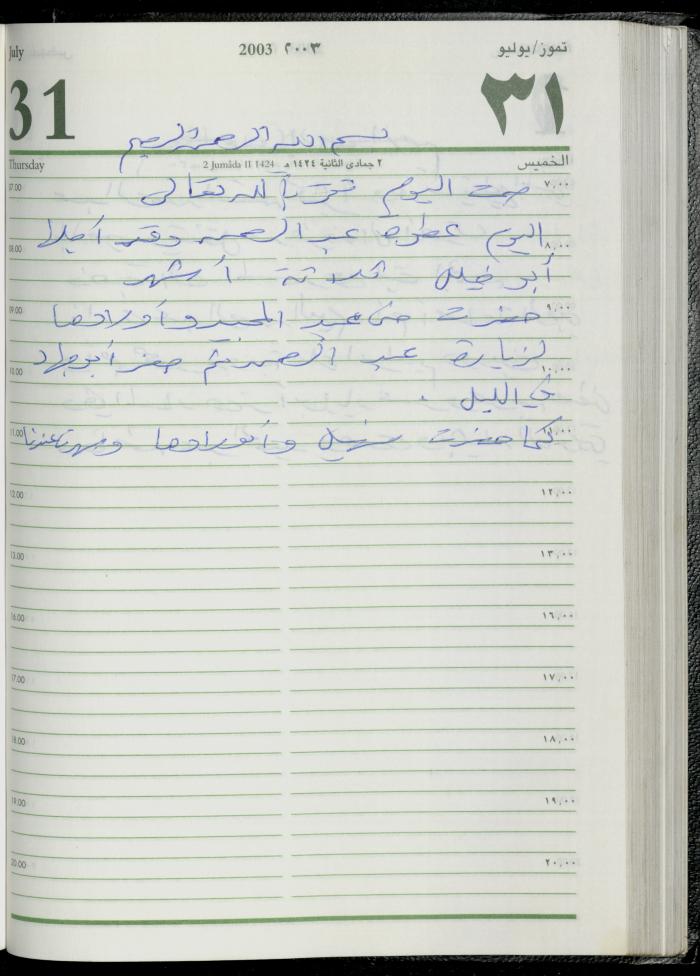 July
2003 ٢٠٠٣
تموز/يوليو
31
٣١
بسم الله الرحمن الرحيم
Thursday
2 Jumâda II 1424 ٢ جمادى الثانية ١٤٢٤ هـ
الخميس
07.00 صمت اليوم تقرباً لله تعالى ٧,٠٠
اليوم عطوة عبد الرحمن وقد أجلها
08.00 ٨,٠٠
أبو خليل ثلاثة أشهر
09.00 حضرت حنى عبد المجيد وأولادها ٩,٠٠
لزيارة عبد الرحمن ثم حضر أبو جهاد
10.00 ١٠,٠٠
في الليل .
11.00 كما حضرت سهيل وأولادها وسهرت عندنا ١١,٠٠
12.00 ١٢,٠٠
13.00 ١٣,٠٠
16.00 ١٦,٠٠
17.00 ١٧,٠٠
18.00 ١٨,٠٠
19.00 ١٩,٠٠
20.00 ٢٠,٠٠